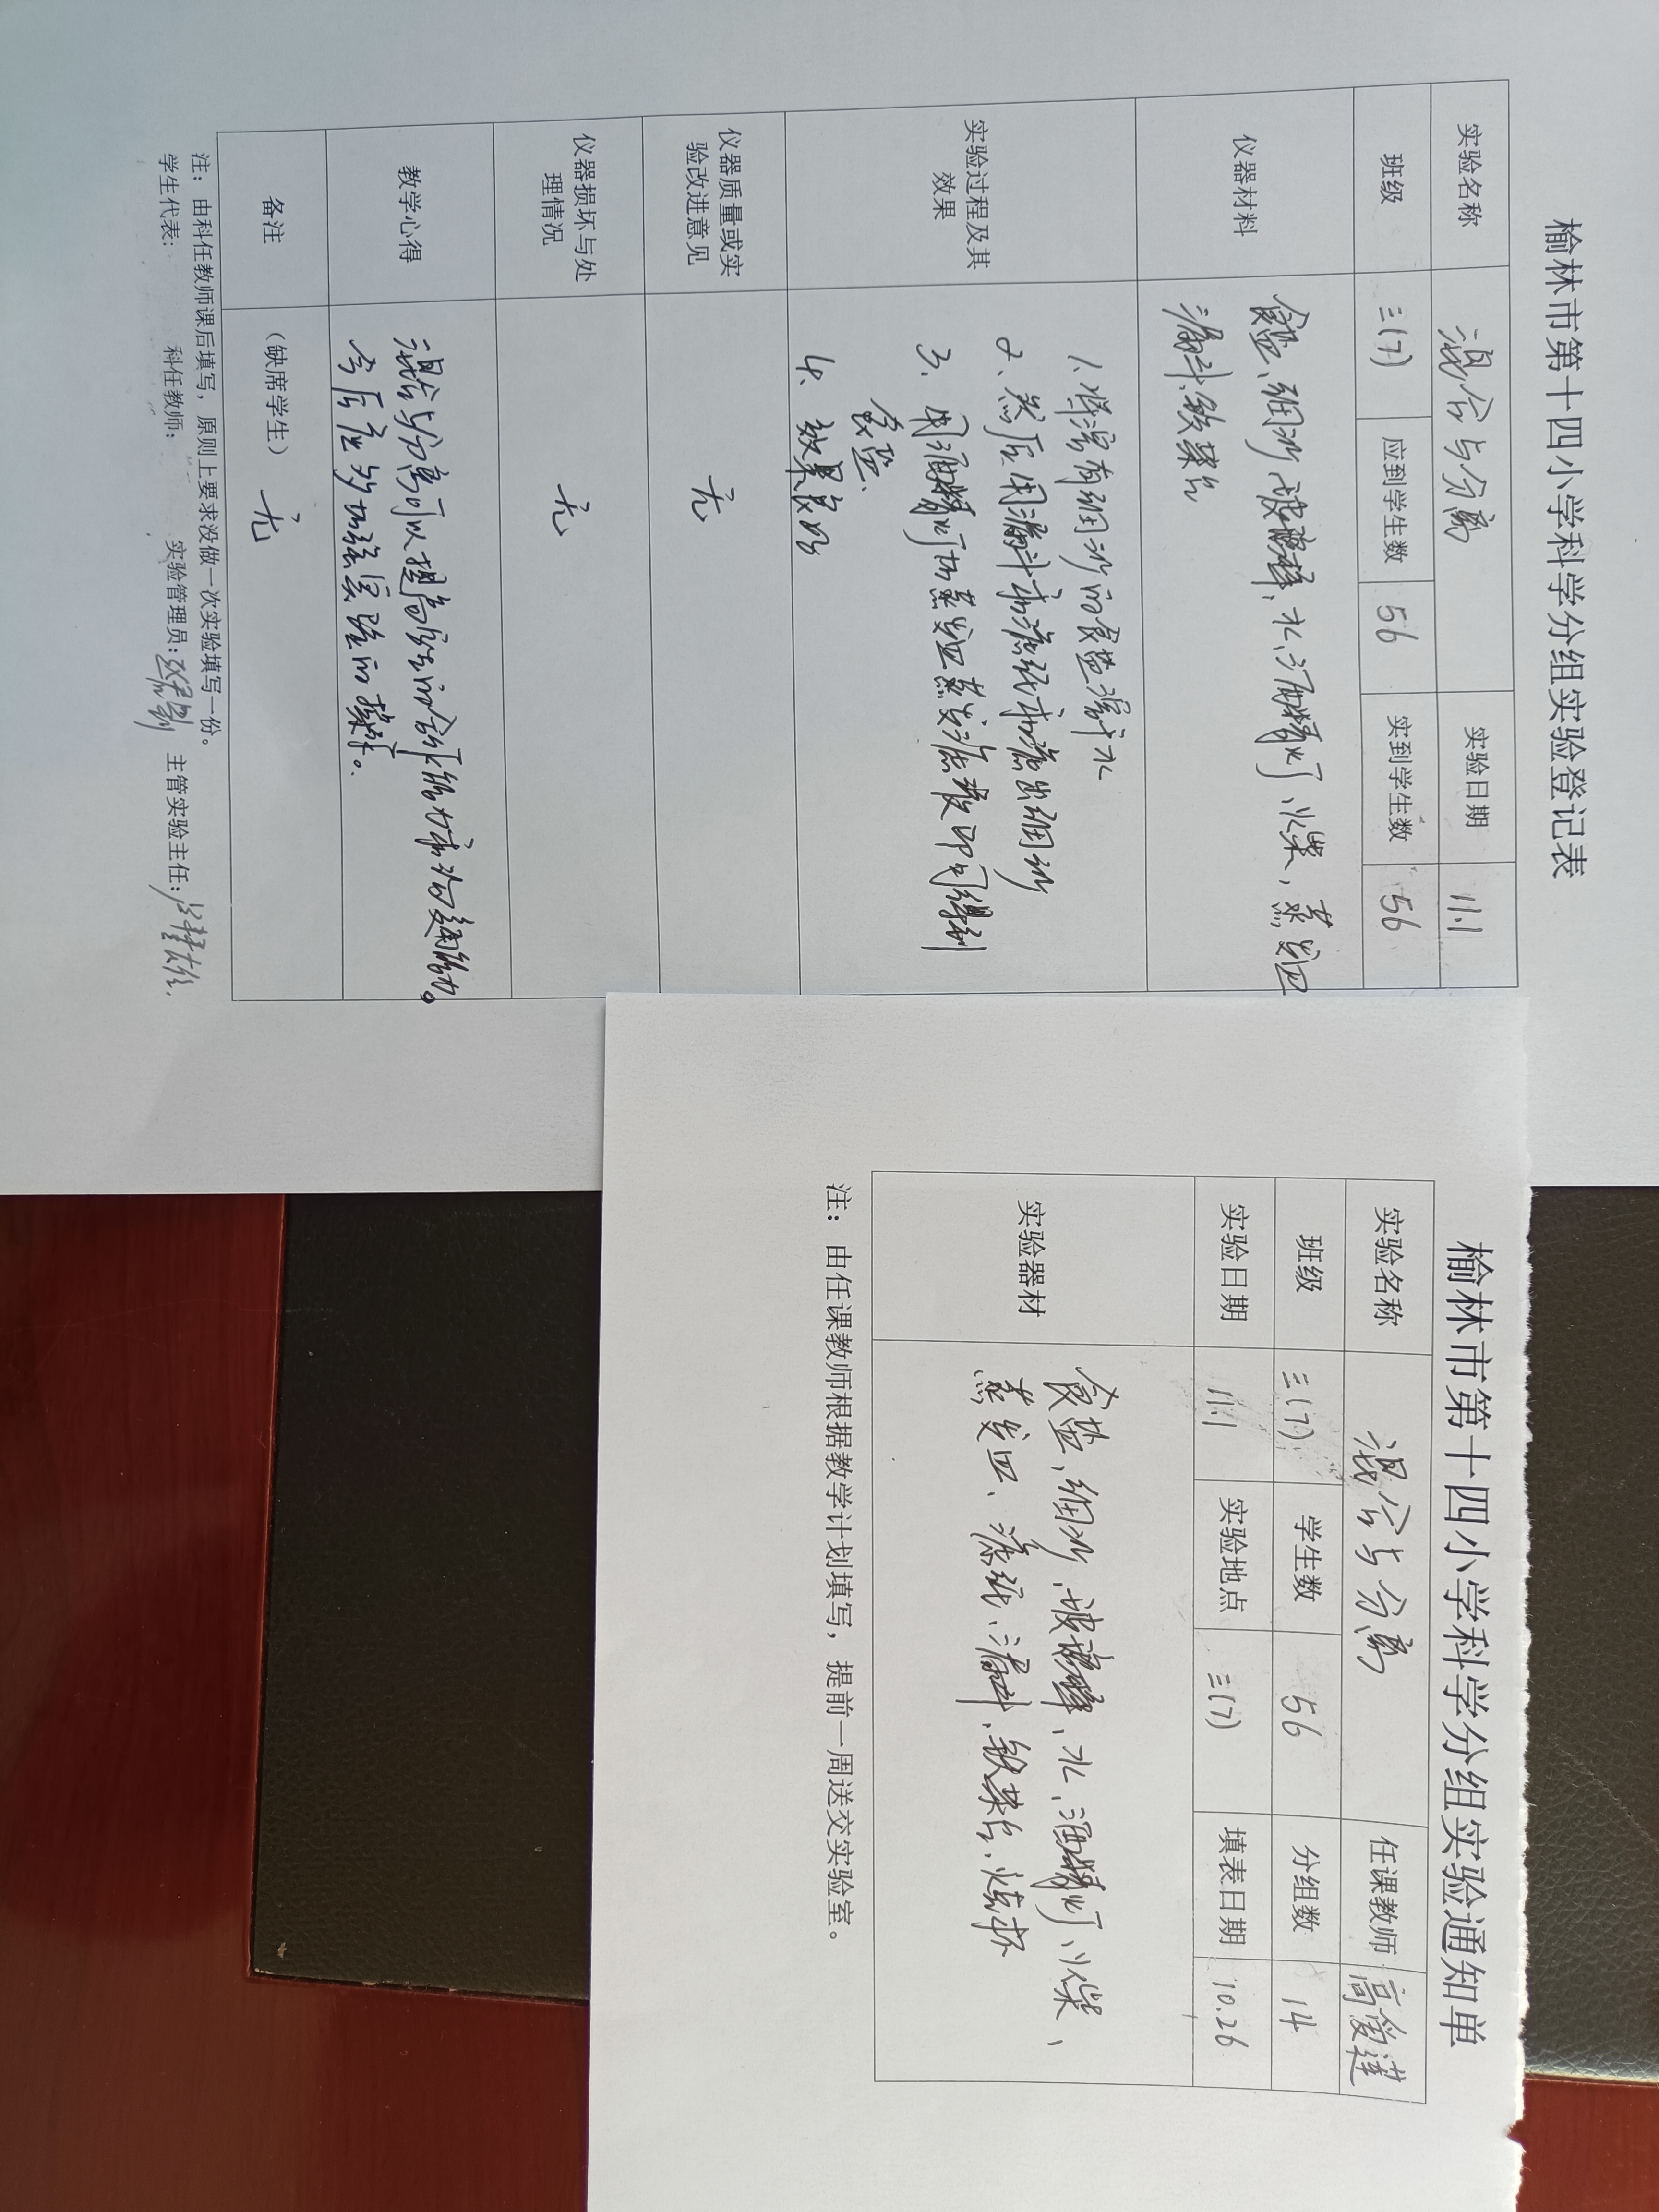 榆林市第十四小学科学分组实验登记表
实验名称 混合与分离 实验日期 11.1
班级 三(7) 应到学生数 56 实到学生数 56
仪器材料 食盐、细沙、玻璃棒、水、酒精灯、火柴,蒸发皿
漏斗、铁架台
实验过程及其效果
1、将混有细沙的食盐溶于水
2、然后用漏斗和滤纸和滤出细沙
3、用酒精灯加热蒸发皿蒸发滤液即可得到
食盐、
4、效果良好
仪器质量或实验改进意见 无
仪器损坏与处理情况 无
教学心得 混合与分离可以提高学生的合作能力和沟通能力。
今后应多加强实验的操作。
备注 (缺席学生) 无
注:由科任教师课后填写,原则上要求没做一次实验填写一份。
学生代表: 科任教师: 实验管理员: 主管实验主任:
榆林市第十四小学科学分组实验通知单
实验名称 混合与分离 任课教师 高爱莲
班级 三(7) 学生数 56 分组数 14
实验日期 11.1 实验地点 三(7) 填表日期 10.26
实验器材 食盐、细沙、玻璃棒、水、酒精灯、火柴、
蒸发皿、滤纸、漏斗、铁架台、烧杯
注:由任课教师根据教学计划填写,提前一周送交实验室。